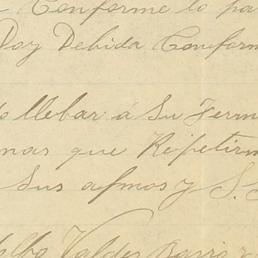 Conforme lo pa
Doy Debida Conform
llebar á Su Term
mas que Repetirm
Sus afmos y S. S
Valdes